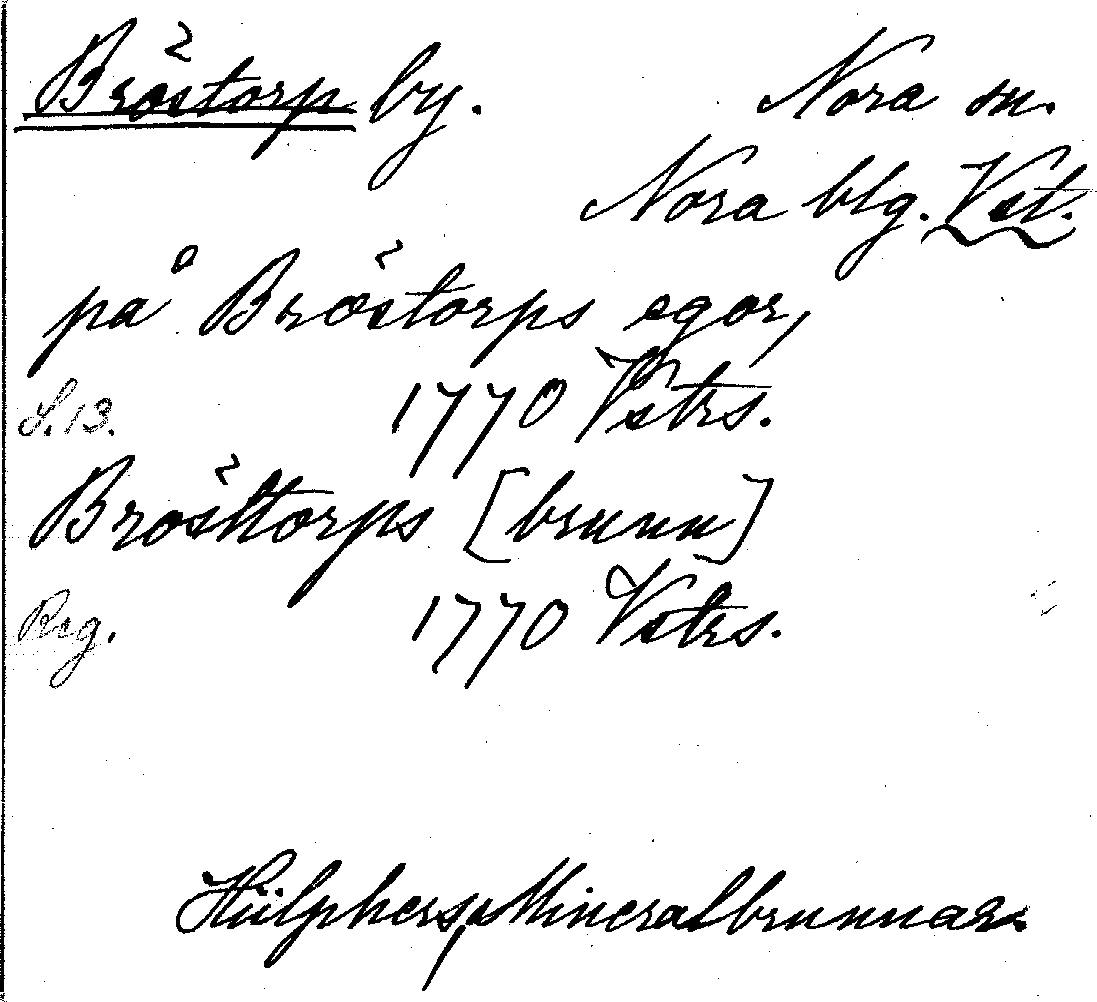 Bröstorp by. Nora sn.
Nora blg. Vstl.
på Bröstorps egor,
S. 13. 1770 Vstrs.
Brösttorps [brunn]
Reg. 1770 Vstrs.
Hülphers, Mineralbrunnar.